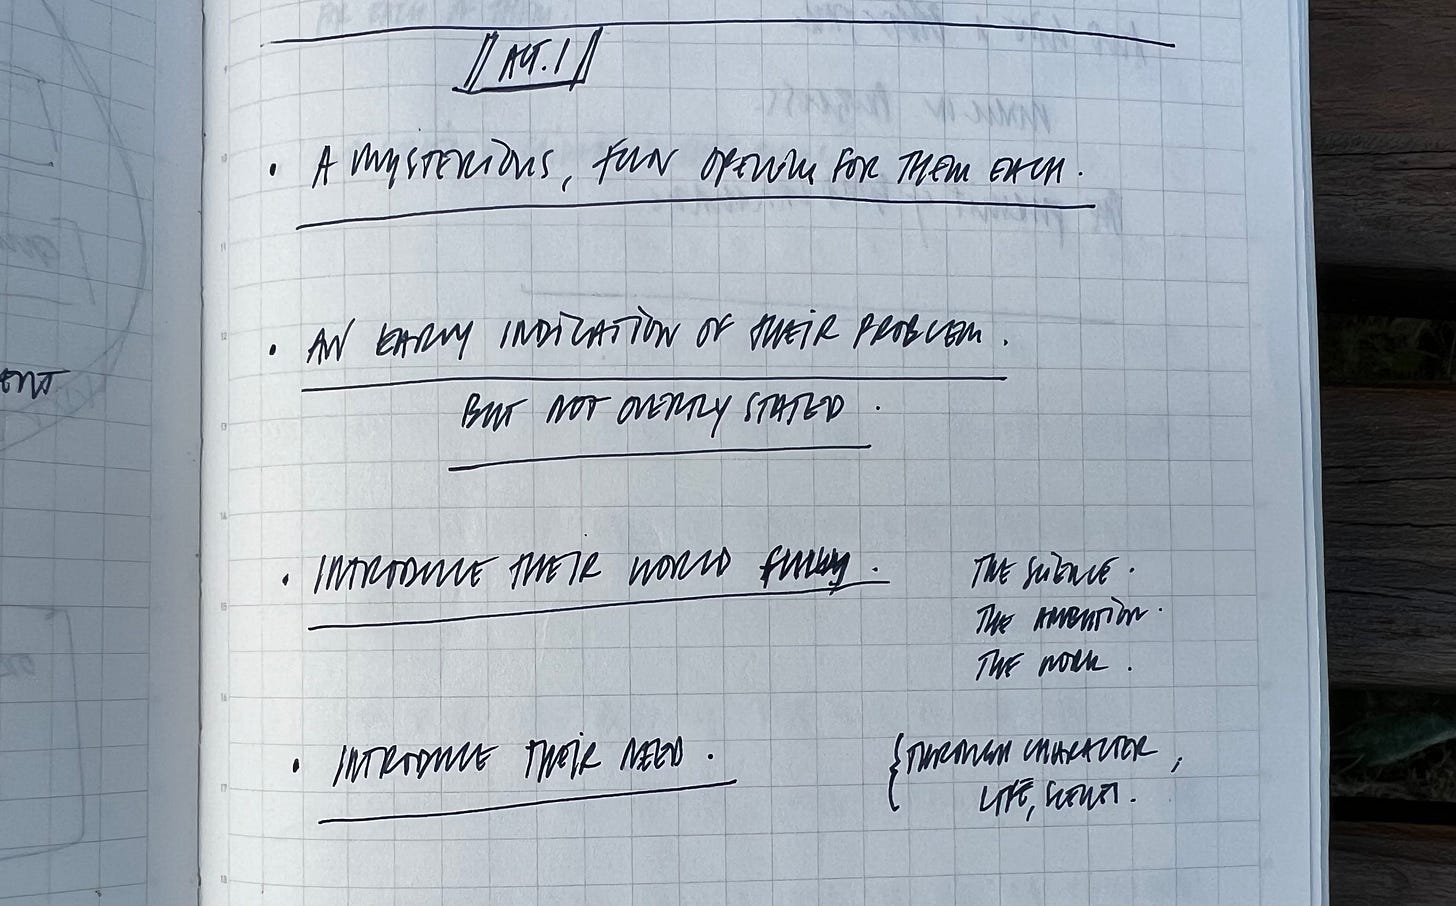 ACT.1
· A MYSTERIOUS, FUN OPENING FOR THEM EACH.
· AN EARLY INDICATION OF THEIR PROBLEM.
BUT NOT OVERTLY STATED.
· INTRODUCE THEIR WORLD FULLY.
THE SCIENCE.
THE AMBITION.
THE WORK.
· INTRODUCE THEIR NEED.
{THROUGH CHARACTER,
LIFE,